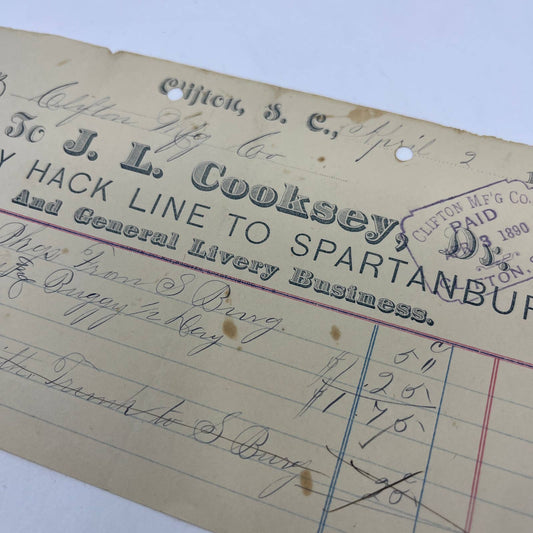 Clifton, S. C., April 2 1
Clifton Mfg Co
To J. L. Cooksey, Dr.
Y HACK LINE TO SPARTANBUR
And General Livery Business.
CLIFTON M'F'G CO.
PAID
3 1890
TON, S.
from S Burg. 50
Buggy ½ Day $1.25
$1.75
Trunk to S Burg